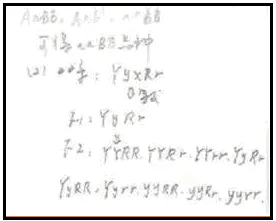 AABB, AABb, aaBB
可得aaBB品种
(2) 亲本: YyxRr
F1: YyRr
F2: YYRR. YYRr. YYrr. YyRr
YyRR. Yyrr. yyRR. yyRr. yyrr.